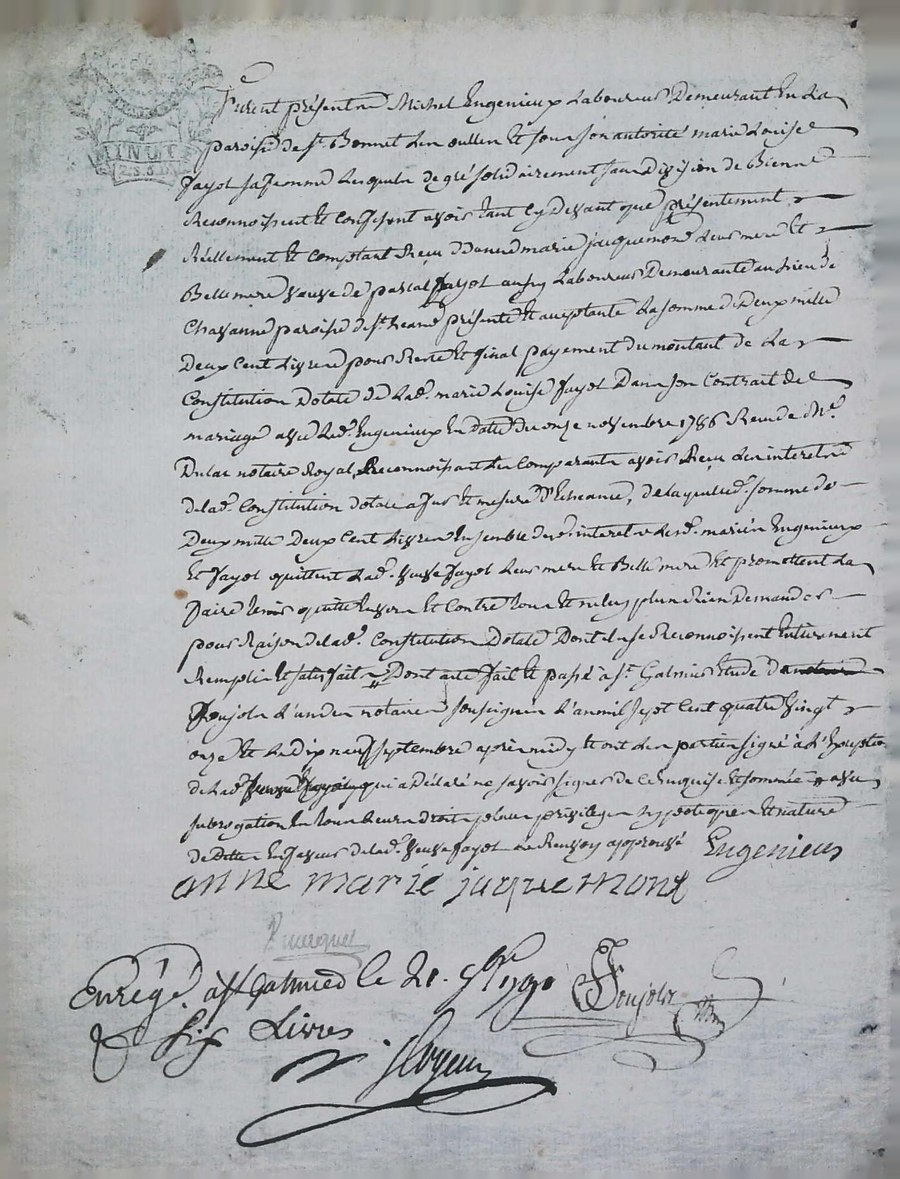 MINUTE
2.S.8.D.
Furent présents Michel Engenieux Laboureur Demeurant En La
paroisse de St. Bonnet Les oulles Et sous son autorité marie Louise
fayol sa femme Lesquels de gré solidairement sans Division de Biens
Reconnoissent Et Confessent avoir tant Cy Devant que présentement
Réellement Et Comptant Reçu D'anne marie jacquemond Leur mere Et
Belle mere veuve de pascal fayol aussy Laboureur Demeurante au Lieu de
Chavanne paroisse de St. présente Et aceptante La somme de Deux mille
Deux Cent Livres pour Reste Et final payement du montant de La
Constitution Dotale de Lad. marie Louise fayol Dans son Contrat de
mariage avec Led. Engenieux En Date du onze novembre 1786 Reçu de Me.
Dulac notaire Royal, Reconnoissant Les Comparants avoir Reçu Les interets
de lad. Constitution dotale a fur Et mesure D'Echeance, de laquelle d. somme de
Deux mille Deux Cent Livres Ensemble des interets Lesd. mariés Engenieux
Et fayol quittent Lad. veuve fayol Leur mere Et Belle mere Et promettent La
faire tenir quitte Envers Et Contre tous Et ne luy plus Rien Demander
pour Raison de lad. Constitution Dotale Dont ils se Reconnoissent Entierement
Remplis Et satisfaits Dont acte fait Et passé à St. Galmier Etude
Foujols L'un des notaires soussignés L'an mil sept Cent quatre vingt
onze Et Le Dix neuf septembre après midy Et ont Les parties signé à L'Exception
de Lad. qui a Déclaré ne savoir signer de Ce Enquise Et sommée avec
subrogation En tous Leurs droits privileges hypoteques Et nature
de Dettes En faveur de lad. veuve fayol Le Renvoy approuvé Engenieux
anne marie jaquemond
Enrégé. à St Galmier le 21. 7bre 1791 Foujols
Six Livres